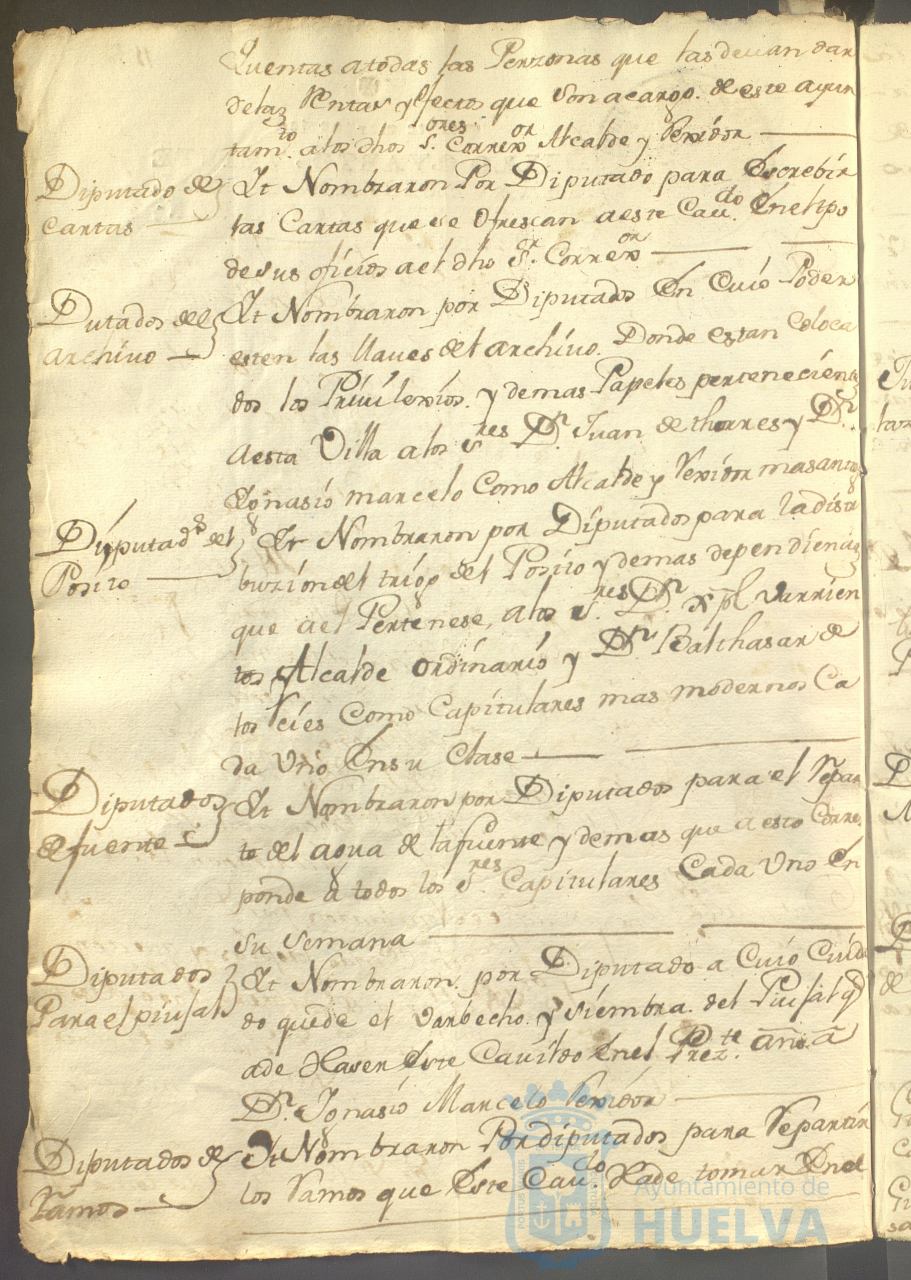 Quentas atodas las Perzonas que las devan dar
delas Rentas y efectos que son acargo de este ayun
tam.to alos dhos S.ores Correx.or Alcalde y Rexidor
Diputado de
cartas
It Nombraron Por Diputado para Escrebir
las Cartas que se Ofrescan aeste Cav.do En el tpo
de sus oficios a el dho S.r Correx.or
Dutados del
archivo
It Nombraron por Diputados En Cuio Poder
esten las llaves del archivo Donde estan coloca
dos los Privilexios y demas Papeles pertenecientes
Aesta Villa alos S.res D.n Juan de thorres y D.n
Ignasio marcelo Como Alcalde y Rexidor mas antig.o
Diputad.s del
Posito
It Nombraron por Diputados para la distri
buzion del trigo del Posito y demas dependiencias
que ael Pertenese, alos S.res D.n xptl Varrien
tos Alcalde ordinario y D.n Balthasar de
los Reies Como Capitulares mas modernos Ca
da Uno En su Clase
Diputados
de fuente
It Nombraron por Diputados para el Repar
to del agua de la fuente y demas que a esto Corres
ponde a todos los S.res Capitulares Cada Uno En
su semana
Diputados
Para el piujal
It Nombraron por Diputado a Cuio Cuida
do quede el varbecho y siembra del Piujal q
ade Haser Este Cavildo En el Prez.te año a
D.n Ignasio Marcelo Rexidor
Diputados de
Ramos
It Nombraron Por diputados para Repartir
los Ramos que Este Cav.do Hade tomar En el
Ayuntamiento de
HUELVA